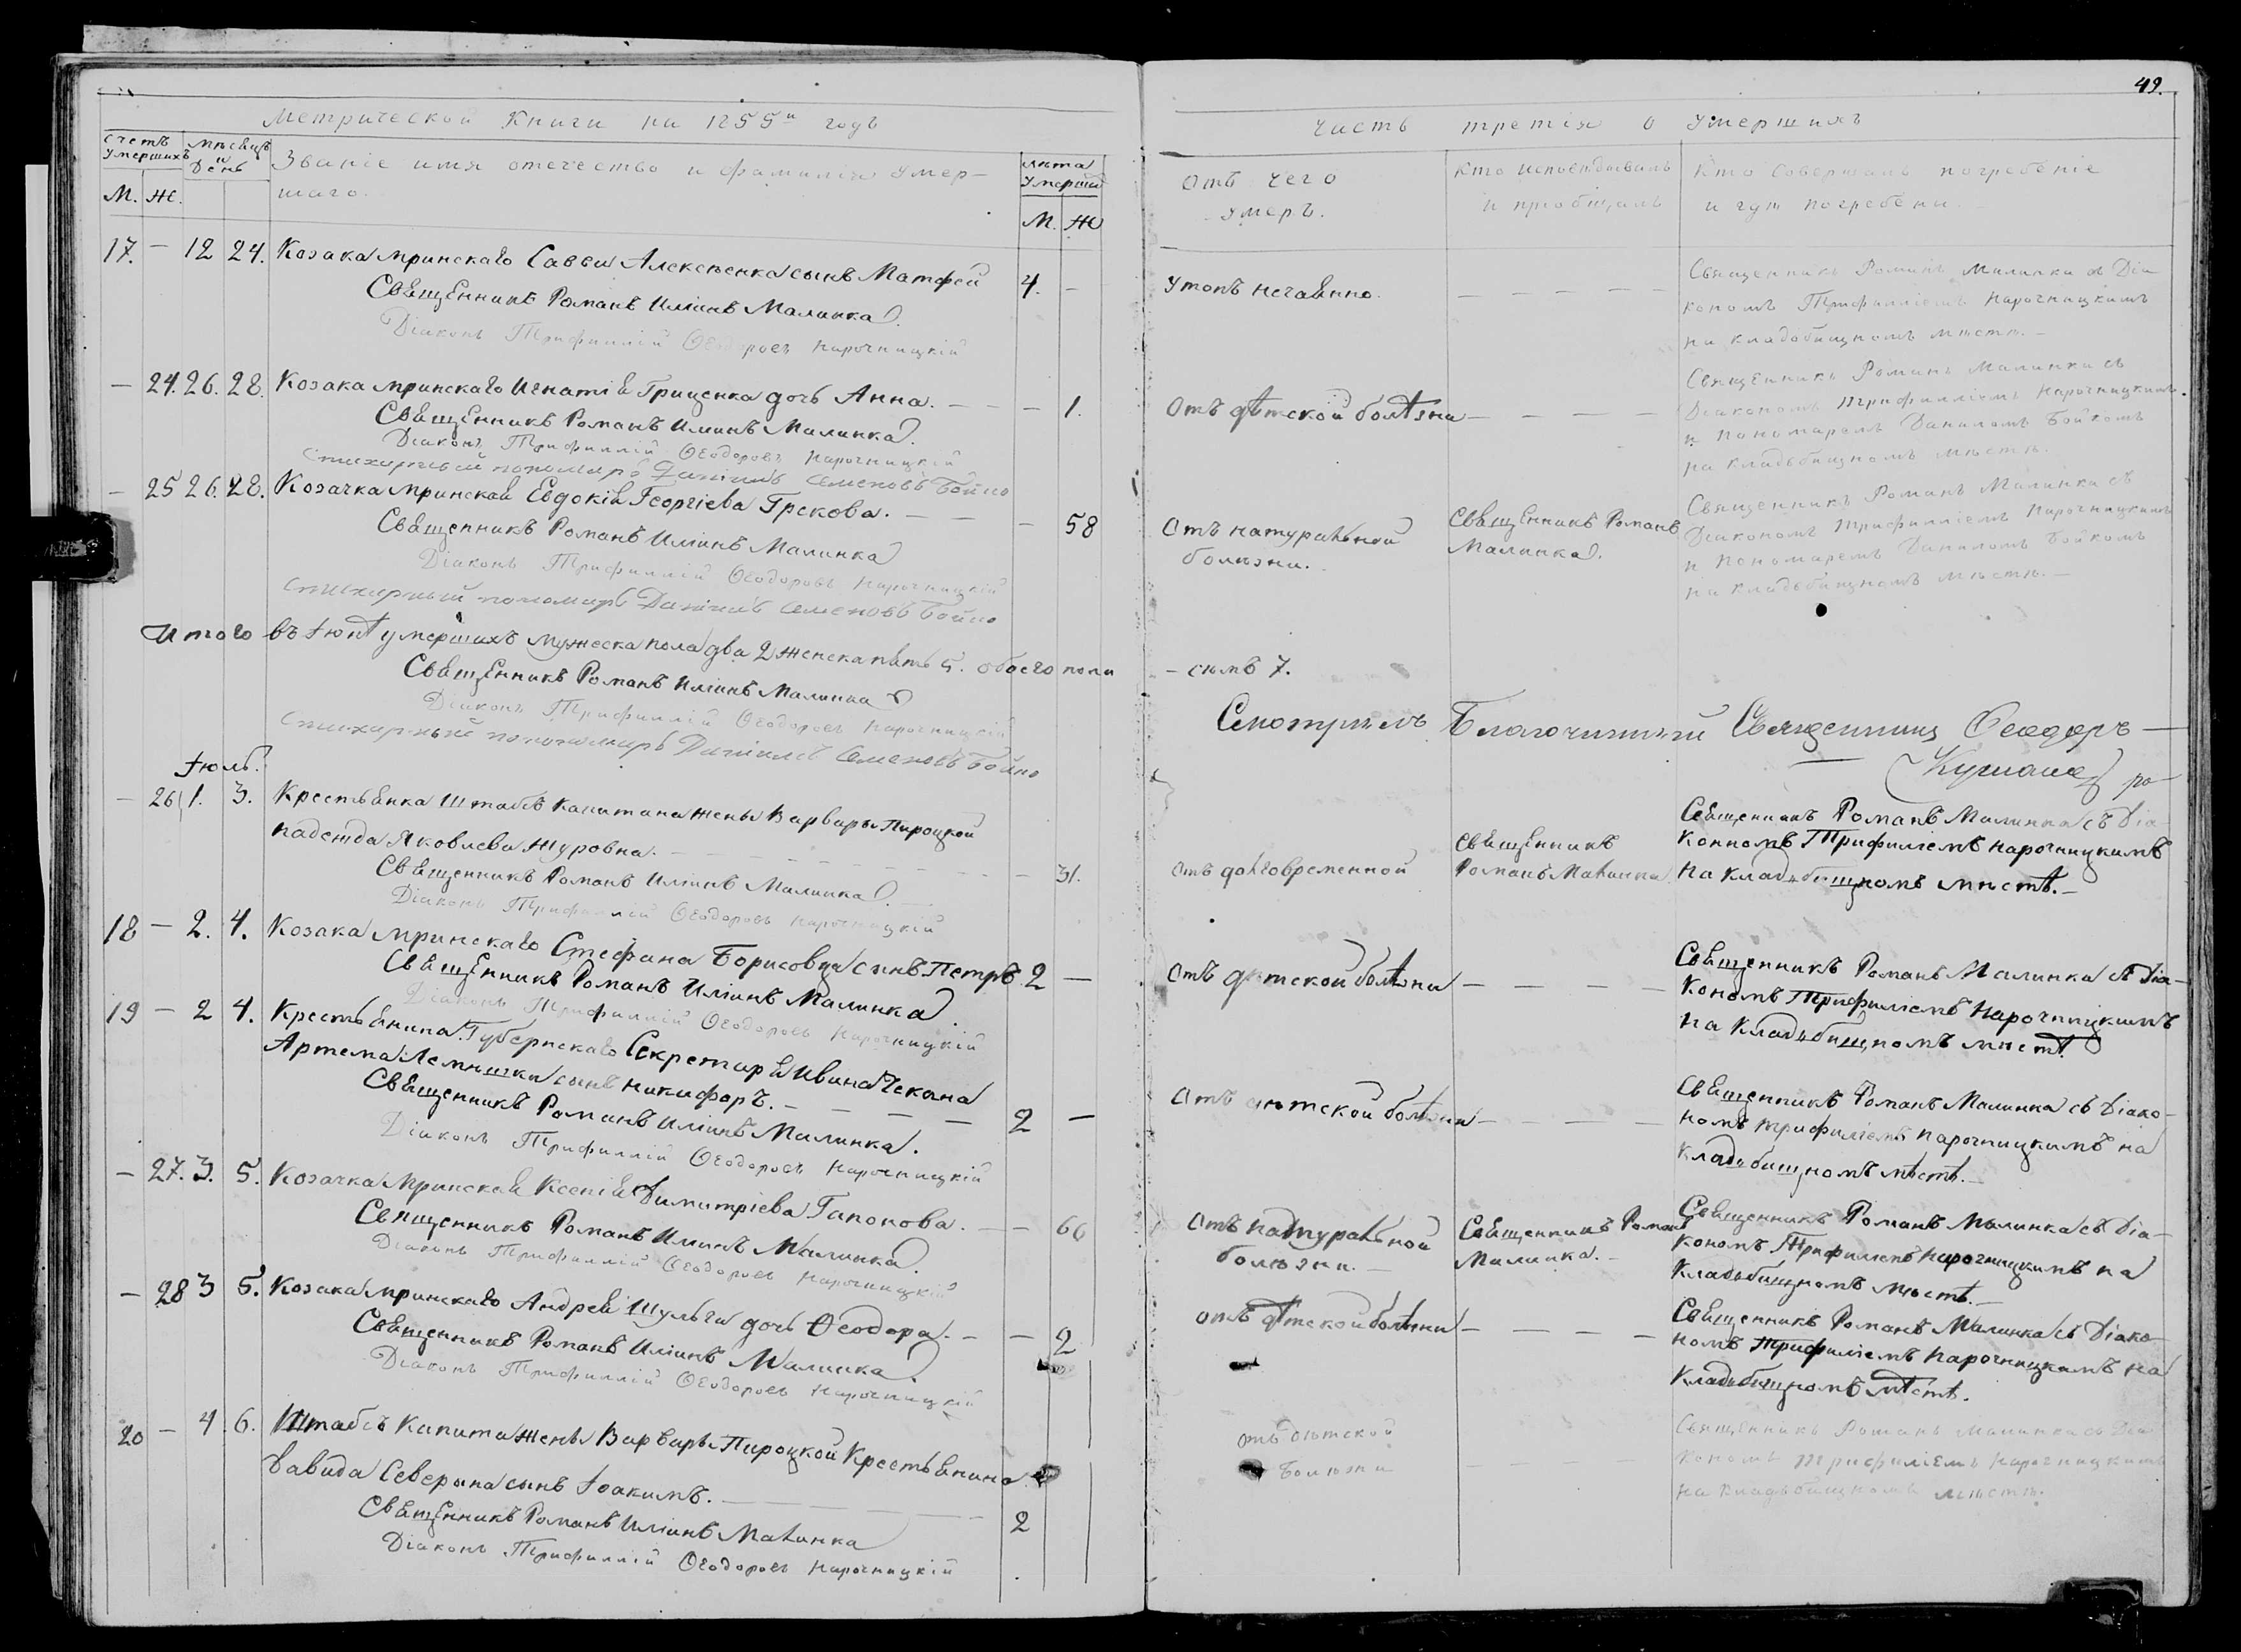 49.
Метрической Книги на 1855й годъ
Счетъ умершихъ
Мѣсяцъ и День
Званіе имя отечество и фамилія умер-
шаго.
Лѣта умерши
М. Ж.
М. Ж
17. — 12 24. Козака мринскаго Саввы Алексѣенка сынъ Матфей 4. —
Священникъ Романъ Иліинъ Малинка.
Діаконъ Трифиллій Ѳеодоровъ Нарочницкій
— 24. 26. 28. Козака мринскаго Игнатія Гриценка дочь Анна. — — — 1.
Священникъ Романъ Илиинъ Малинка.
Діаконъ Трифиллій Ѳеодоровъ Нарочницкій
Стихарный пономарь Даніилъ Семеновъ Бойко
— 25 26. 28. Козачка мринская Евдокія Георгіева Грекова. — — — 58
Священникъ Романъ Иліинъ Малинка
Діаконъ Трифиллій Ѳеодоровъ Нарочницкій
Стихарный пономарь Даніилъ Семеновъ Бойко
Итого въ Іюнѣ умершихъ мужеска пола два 2 женска пять 5. обоего пола
Священникъ Романъ Иліинъ Малинка
Діаконъ Трифиллій Ѳеодоровъ Нарочницкій
Стихарный пономарь Даніилъ Семеновъ Бойко
Іюль.
— 26 1. 3. Крестьянка Штабсъ Капитана жены Варвары Пироцкой
Надежда Яковлева Журовна. — 31.
Священникъ Романъ Иліинъ Малинка.
Діаконъ Трифиллій Ѳеодоровъ Нарочницкій
18 — 2. 4. Козака мринскаго Стефана Борисовца сынъ Петръ. 2 —
Священникъ Романъ Иліинъ Малинка.
Діаконъ Трифиллій Ѳеодоровъ Нарочницкій
19 — 2 4. Крестьянина Губернскаго Секретаря Ивана Чекана
Артема Лемишки сынъ Никифоръ. — — — 2 —
Священникъ Романъ Иліинъ Малинка.
Діаконъ Трифиллій Ѳеодоровъ Нарочницкій
— 27. 3. 5. Козачка Мринская Ксенія Димитріева Гапонова. — — 66
Священникъ Романъ Илиинъ Малинка.
Діаконъ Трифиллій Ѳеодоровъ Нарочницкій
— 28 3 5. Козака мринскаго Андрея Шульги дочь Ѳеодора. — — 2
Священникъ Романъ Иліинъ Малинка.
Діаконъ Трифиллій Ѳеодоровъ Нарочницкій
20 — 4. 6. Штабсъ Капита жены Варвары Пироцкой Крестьянина
Давида Северына сынъ Іоакимъ. — 2
Священникъ Романъ Иліинъ Малинка
Діаконъ Трифиллій Ѳеодоровъ Нарочницкій
Часть третія о умершихъ
Отъ чего
умеръ.
Кто исповѣдывалъ
и пріобщалъ
Кто совершалъ погребеніе
и гдѣ погребены.
Утопъ нечаянно. — — — — —
Священникъ Романъ Малинка съ Діа
кономъ Трифилліемъ Нарочницкимъ
на кладбищномъ мѣстѣ. —
Отъ дѣтской болѣзни — — — —
Священникъ Романъ Малинка съ
Діакономъ Трифилліемъ Нарочницкимъ
и Пономаремъ Даниломъ Бойкомъ
на кладьбищномъ мѣстѣ.
Отъ натуральной
болѣзни.
Священникъ Романъ
Малинка.
Священникъ Романъ Малинка съ
Діакономъ Трифилліемъ Нарочницкимъ
и Пономаремъ Даниломъ Бойкомъ
на кладьбищномъ мѣстѣ. —
— семь 7.
Смотрѣлъ Благочинный Священникъ Ѳеодоръ —
Отъ долговременной
Священникъ
Романъ Малинка
Священникъ Романъ Малинка съ Діа-
кономъ Трифиліемъ Нарочницкимъ
на Кладьбищномъ мѣстѣ. —
Отъ дѣтской болѣзни — — — —
Священникъ Романъ Малинка съ Діа-
кономъ Трифиліемъ Нарочницкимъ
на Кладьбищномъ мѣстѣ.
Отъ дѣтской болѣзни — — — —
Священникъ Романъ Малинка съ Діако-
номъ Трифиліемъ Нарочницкимъ на
Кладьбищномъ мѣстѣ. —
Отъ натуральной
болѣзни. —
Священникъ Романъ
Малинка. —
Священникъ Романъ Малинка съ Діа-
кономъ Трифиліемъ Нарочницкимъ на
Кладьбищномъ мѣстѣ. —
Отъ дѣтской болѣзни — — — —
Священникъ Романъ Малинка съ Діако-
номъ Трифиліемъ Нарочницкимъ на
Кладьбищномъ мѣстѣ.
Отъ дѣтской
болѣзни
Священникъ Романъ Малинка съ Діа
кономъ Трифиліемъ Нарочницкимъ
на кладьбищномъ мѣстѣ.